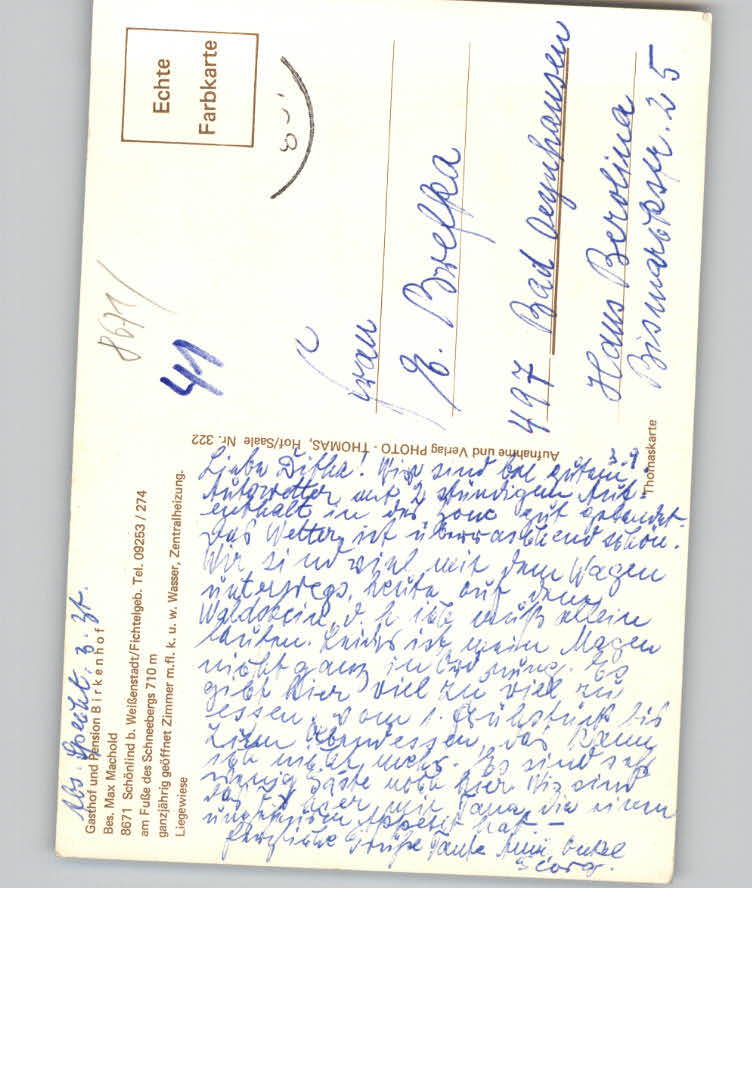 Abs. Specht. z. Zt.
Gasthof und Pension Birkenhof
Bes. Max Machold
8671 Schönlind b. Weißenstadt/Fichtelgeb. Tel. 09253 / 274
am Fuße des Schneebergs 710 m
ganzjährig geöffnet Zimmer m.fl. k. u. w. Wasser, Zentralheizung.
Liegewiese
3.9
Wir sind bei gutem
Autowetter mit 2 stündigem Auf-
enthalt in der Zone gut gelandet.
Das Wetter ist überraschend schön.
Wir sind viel mit dem Wagen
unterwegs, heute auf dem
Waldstein, d. h. ich muß allein
laufen. Leider ist mein Magen
nicht ganz in Ordnung. Es
gibt hier viel zu viel zu
essen, vom 1. Frühstück bis
zum Abendessen, das kann
ich nicht mehr. Es sind sehr
wenig Gäste noch hier. Wir sind
hier mit die einen
ungeheuren Appetit hat. –
Herzliche Grüße Tante Onkel
Georg.
Aufnahme und Verlag PHOTO - THOMAS, Hof/Saale Nr. 322
Thomaskarte
Echte
Farbkarte
8671/
41
Frau
E.
497 Bad Oeynhausen
Haus Berolina
Bismarckstr. 25